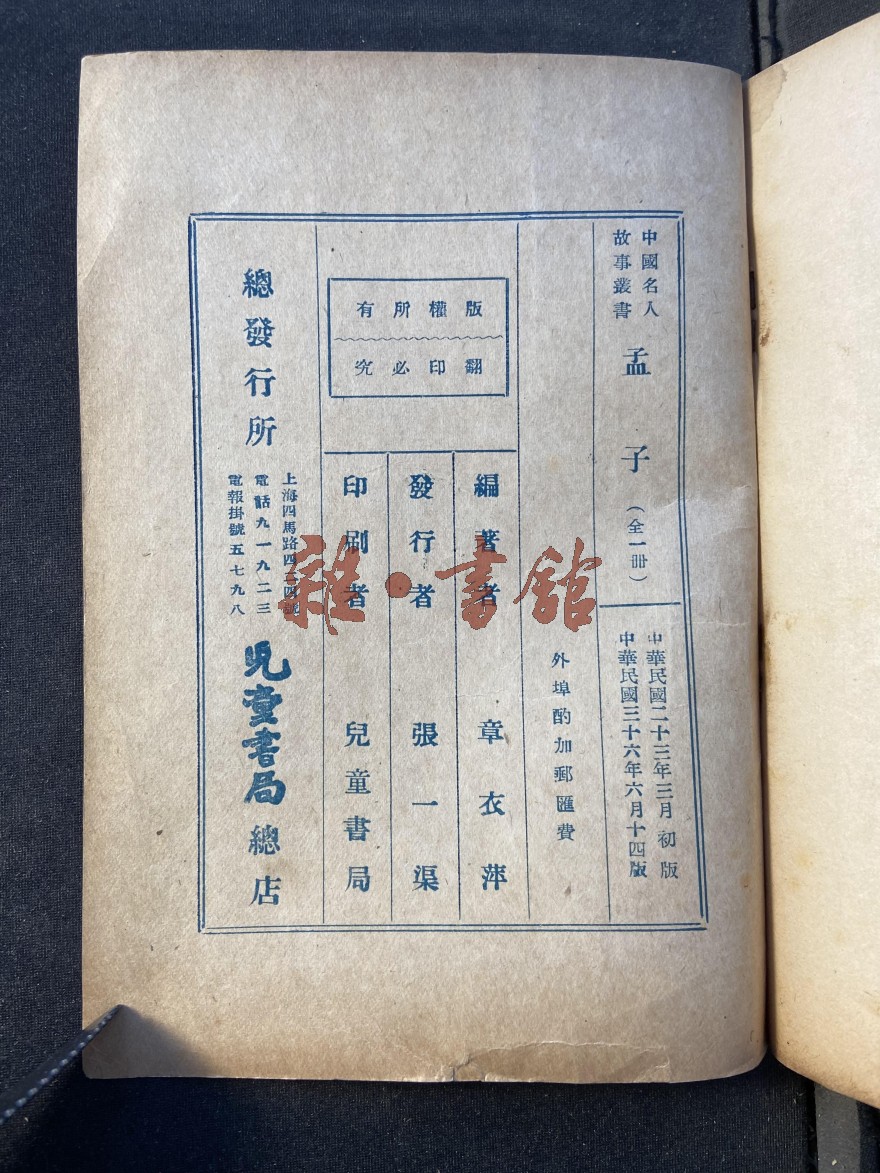 中國名人
故事叢書
孟子（全一冊）
中華民國二十三年三月初版
中華民國三十六年六月十四版
外埠酌加郵匯費
版權所有
翻印必究
編著者 章衣萍
發行者 張一渠
印刷者 兒童書局
總發行所
上海四馬路四二四號
電話九一九二三
電報掛號五七九八
兒童書局總店
雜·書館